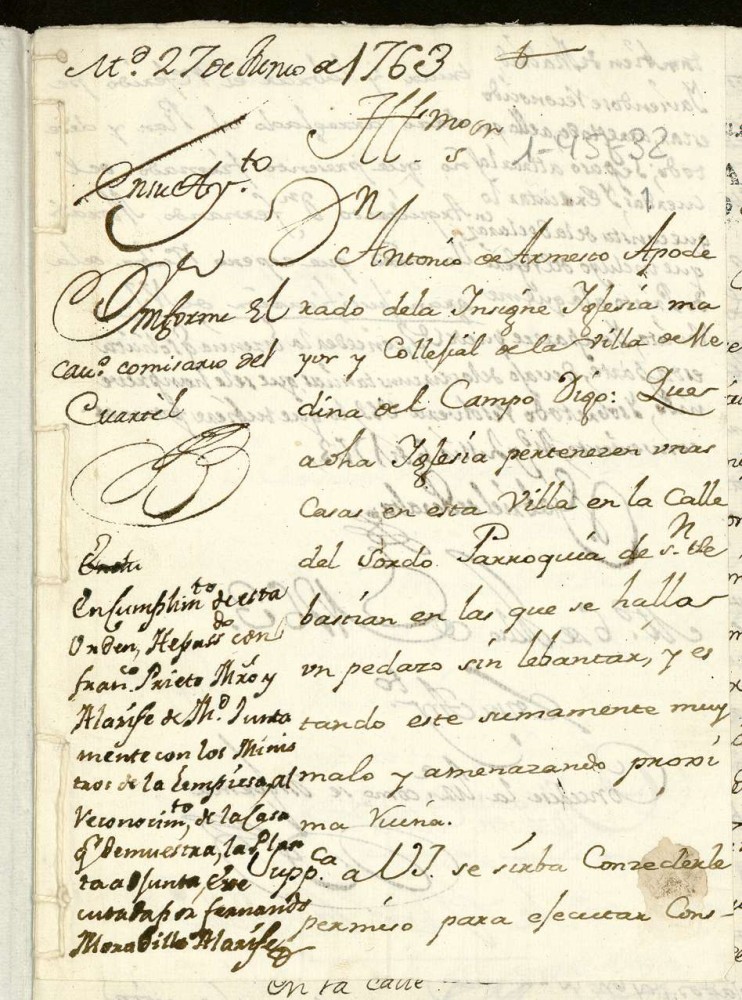 M.d 27 de Junio de 1763
Yll.mo S.or
1-45-32
1
En su Ay.to
D.n
Antonio de Armesto Apode
rado dela Insigne Iglesia ma
yor y Collesial de la Villa de Me
dina del Campo Digo: Que
a dha Iglesia pertenezen unas
Casas en esta Villa en la Calle
del Sordo Parroquia de S.n Se
bastian en las que se halla
un pedazo sin lebantar, y es
tando este sumamente muy
malo y amenazando proxi
ma Ruina.
Supp.ca a VI. se sirba Conzederle
permiso para ejecutar Cons-
Informe El
Cau.o comisario del
Cuartel
En Cumplim.to de esta
Orden, He pass.do con
fran.co Prieto Mro y
Alarife de M.d Junta
mente con los Minis
tros de la Limpieza, al
Reconocim.to de la Casa
q.e demuestra, la Plan
ta adjunta, Exe
cutada por fernando
Moradillo Alarife
en la calle